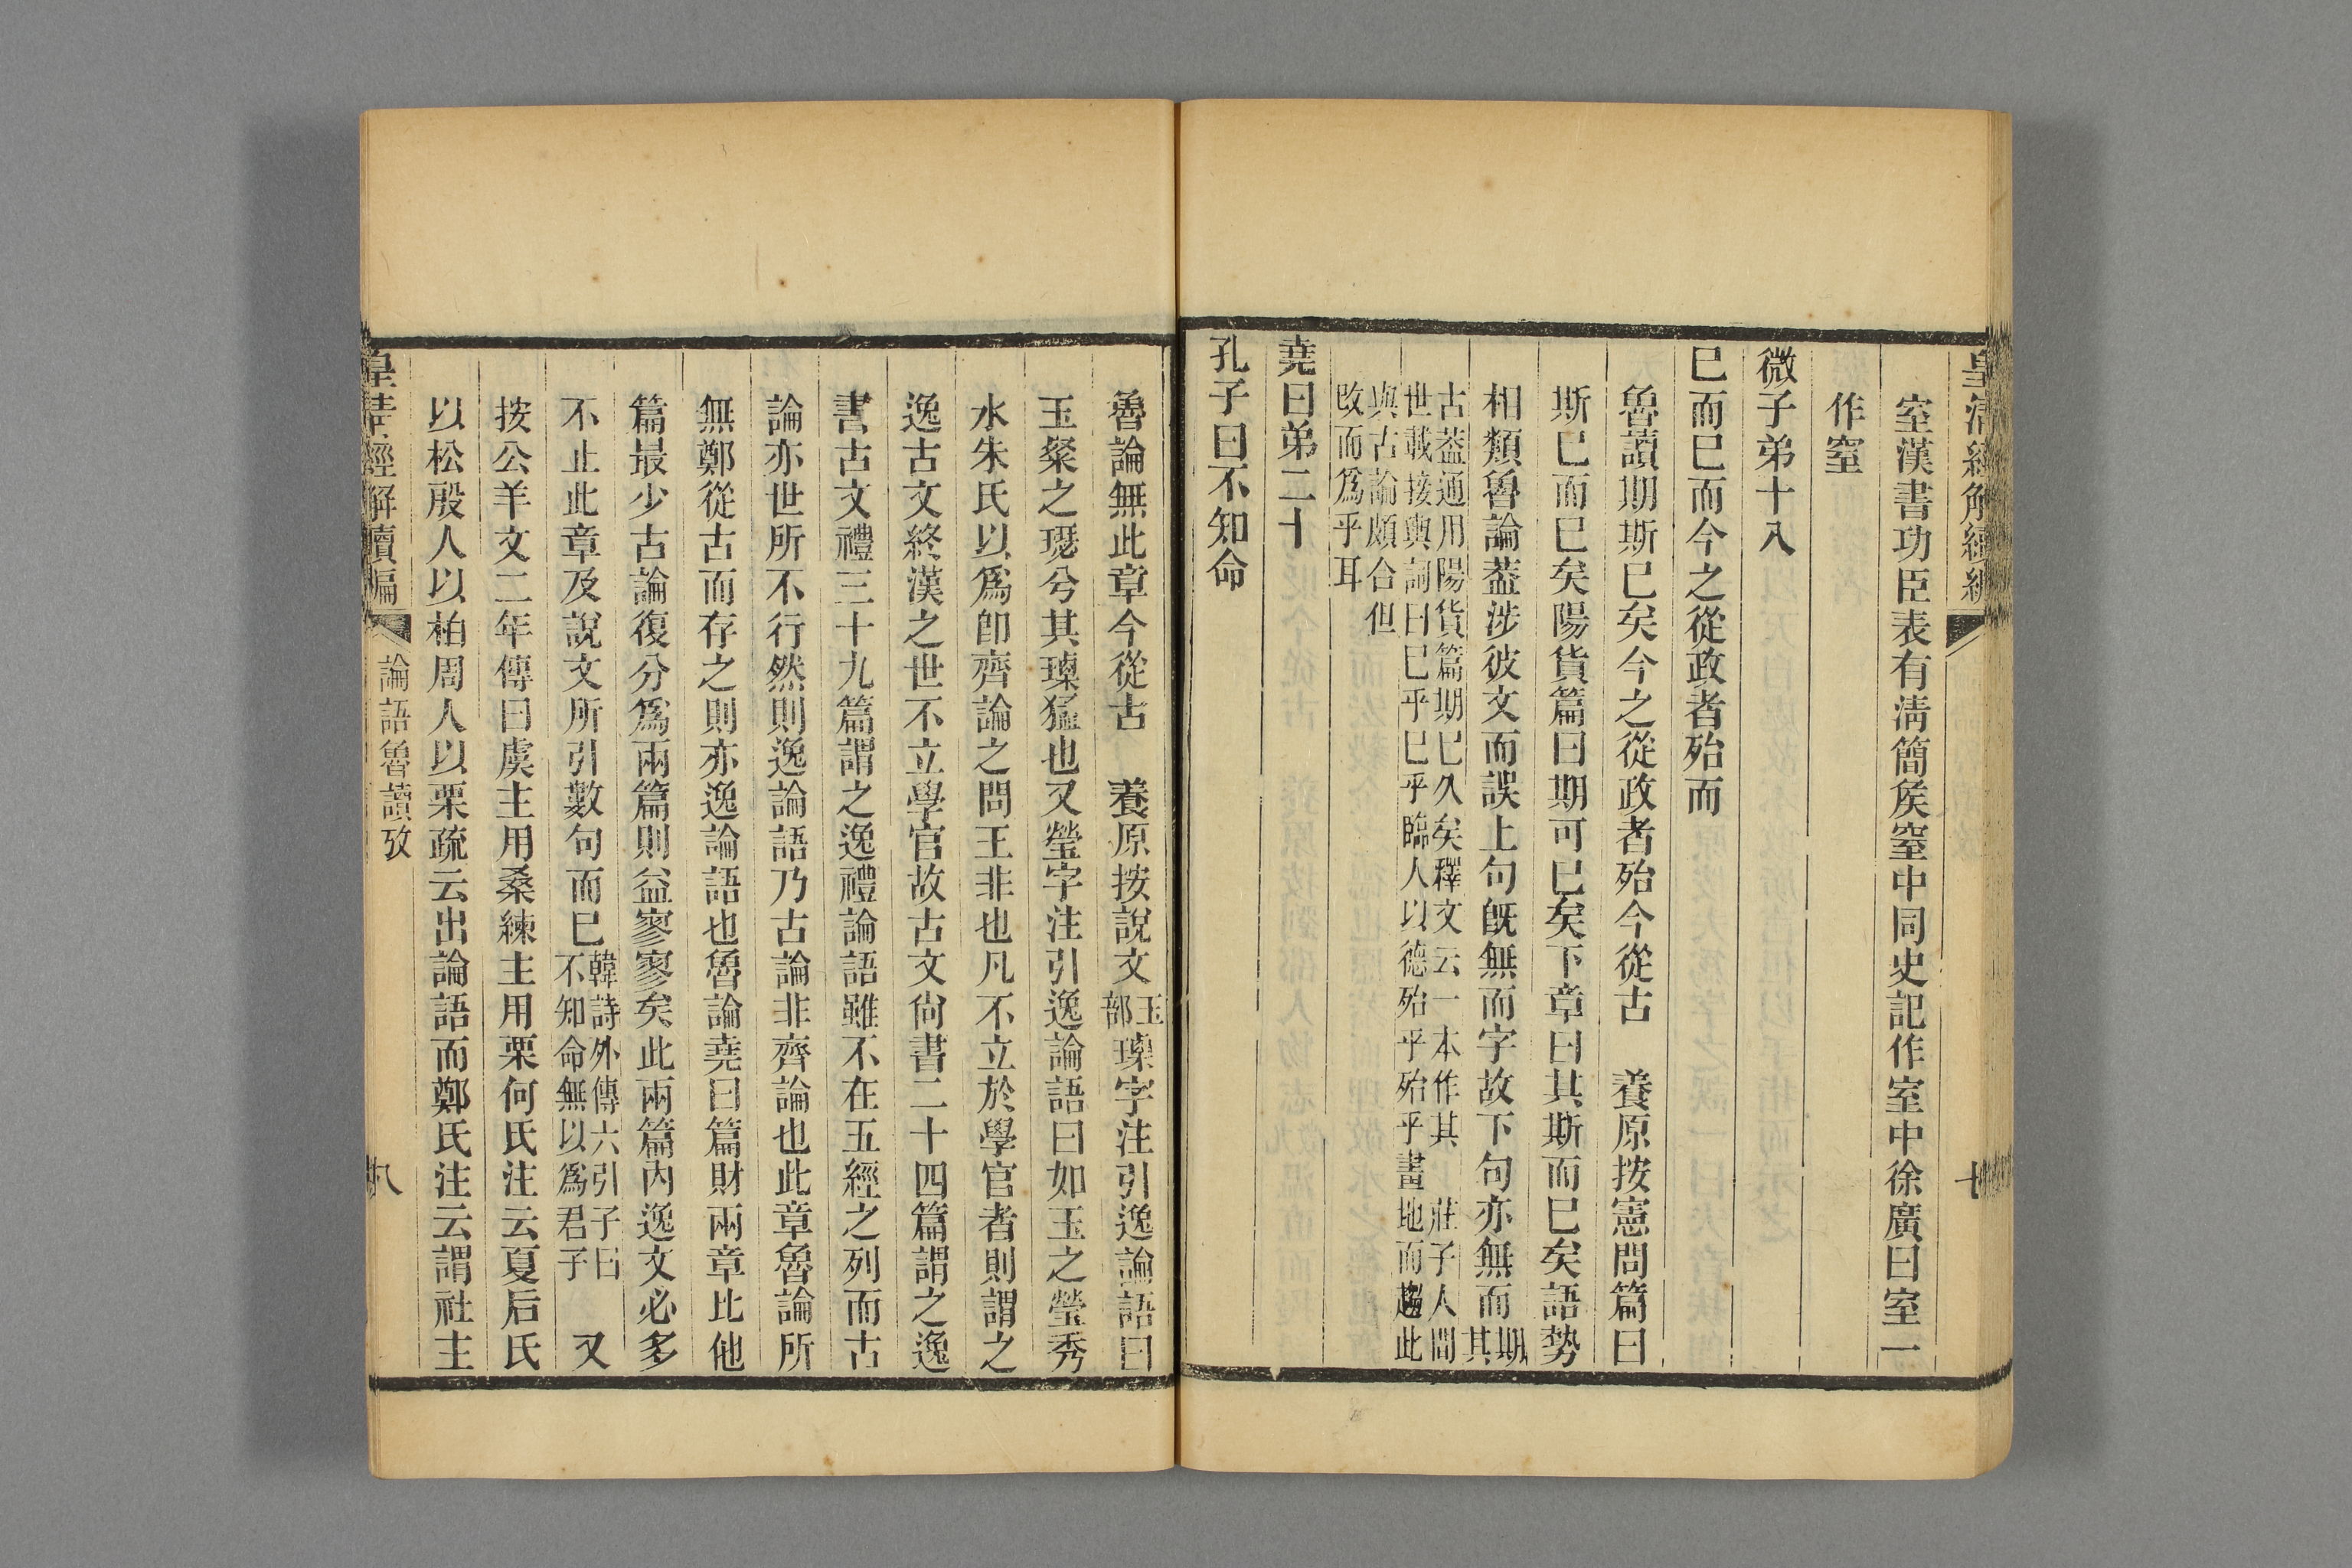 室漢書功臣表有淸簡矦窒中同史記作室中徐廣曰室一
作窒
微子弟十八
已而已而今之從政者殆而
魯讀期斯已矣今之從政者殆今從古　養原按憲問篇曰
斯已而已矣陽貨篇曰期可已矣下章曰其斯而已矣語勢
相類魯論葢涉彼文而誤上句旣無而字故下句亦無而期其
古葢通用陽貨篇期已久矣釋文云一本作其　莊子人間
世載接輿詞曰已乎已乎臨人以德殆乎殆乎畫地而趨此
與古論頗合但
改而爲乎耳
堯曰弟二十
孔子曰不知命
魯論無此章今從古　養原按說文玉部璪字注引逸論語曰
玉粲之瑟兮其瑮猛也又瑩字注引逸論語曰如玉之瑩秀
水朱氏以爲卽齊論之問王非也凡不立於學官者則謂之
逸古文終漢之世不立學官故古文尙書二十四篇謂之逸
書古文禮三十九篇謂之逸禮論語雖不在五經之列而古
論亦世所不行然則逸論語乃古論非齊論也此章魯論所
無鄭從古而存之則亦逸論語也魯論堯曰篇財兩章比他
篇最少古論復分爲兩篇則益寥寥矣此兩篇內逸文必多
不止此章及說文所引數句而已韓詩外傳六引子曰不知命無以爲君子　又
按公羊文二年傳曰虞主用桑練主用栗何氏注云夏后氏
以松殷人以柏周人以栗疏云出論語而鄭氏注云謂社主
皇淸經解續編
論語魯讀攷
八